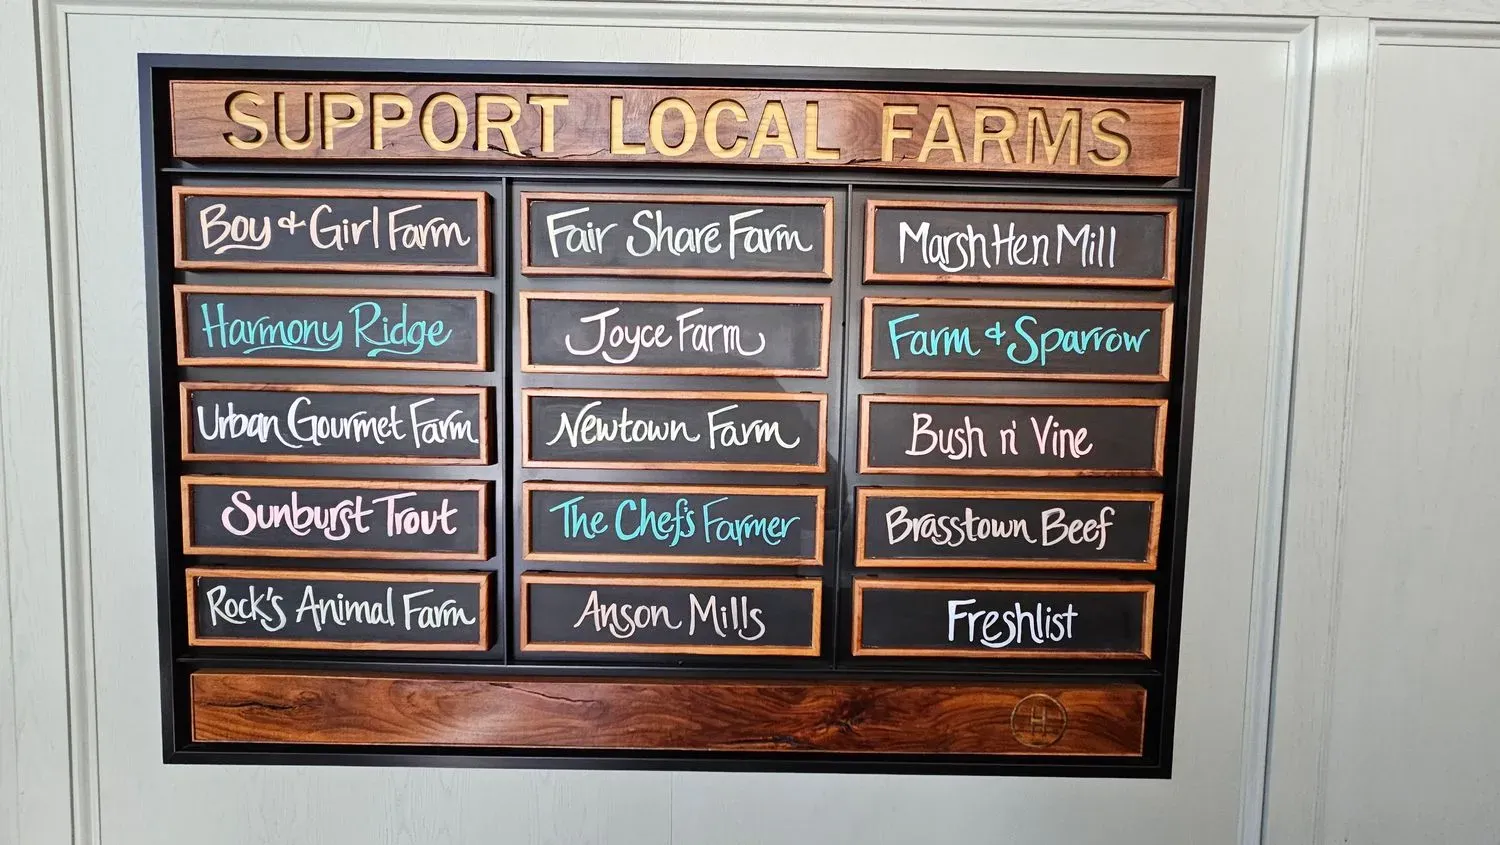 SUPPORT LOCAL FARMS
Boy & Girl Farm
Harmony Ridge
Urban Gourmet Farm
Sunburst Trout
Rock's Animal Farm
Fair Share Farm
Joyce Farm
Newtown Farm
The Chef's Farmer
Anson Mills
Marsh Hen Mill
Farm & Sparrow
Bush n' Vine
Brasstown Beef
Freshlist
H